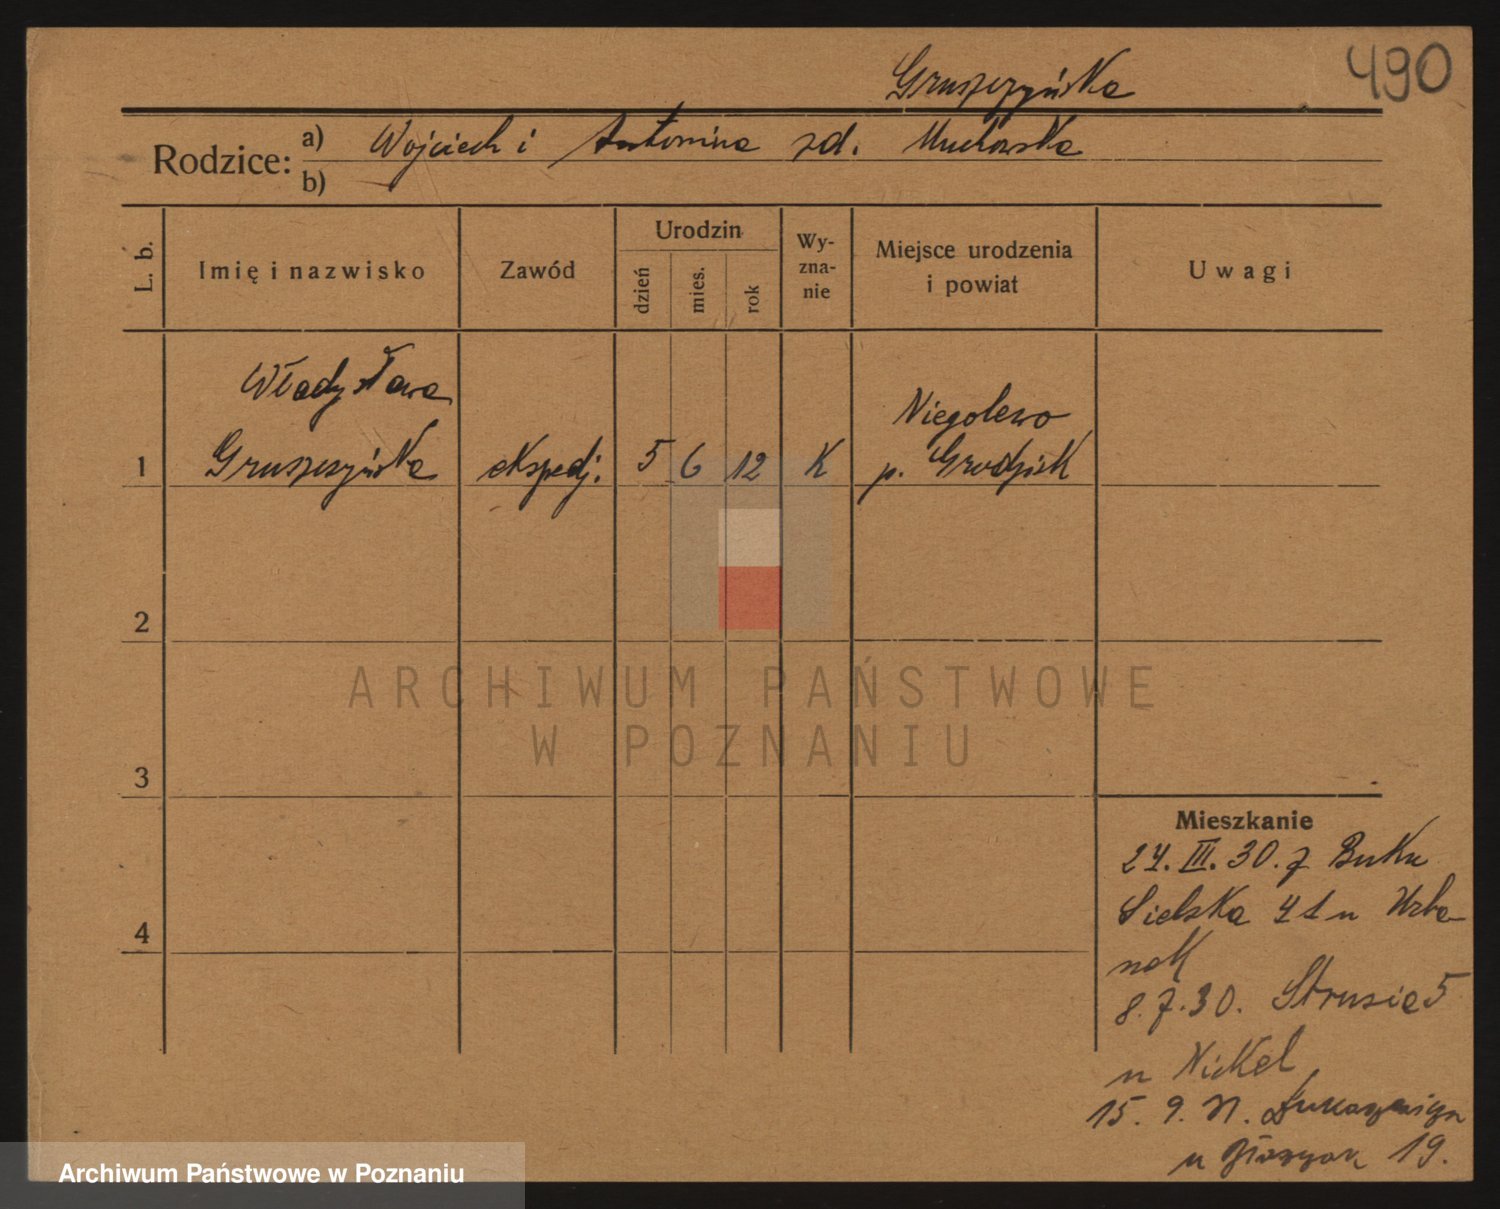 Gruszczyńska
490
Rodzice: a) Wojciech i Antonina zd. Muchowska
b)
L. b.
Imię i nazwisko
Zawód
Urodzin
dzień
mies.
rok
Wy-
zna-
nie
Miejsce urodzenia
i powiat
Uwagi
Władysława
Gruszczyńska
1
ekspedj.
5
6
12
K
Niegolewo
p. Grodzisk
2
ARCHIWUM PAŃSTWOWE
W POZNANIU
3
4
Mieszkanie
24. III. 30. z Buku
Sielska 41 u Urba-
nek
8. 7. 30. Strusia 5
u Nickel
15. 9. 31.
u 19.
Archiwum Państwowe w Poznaniu